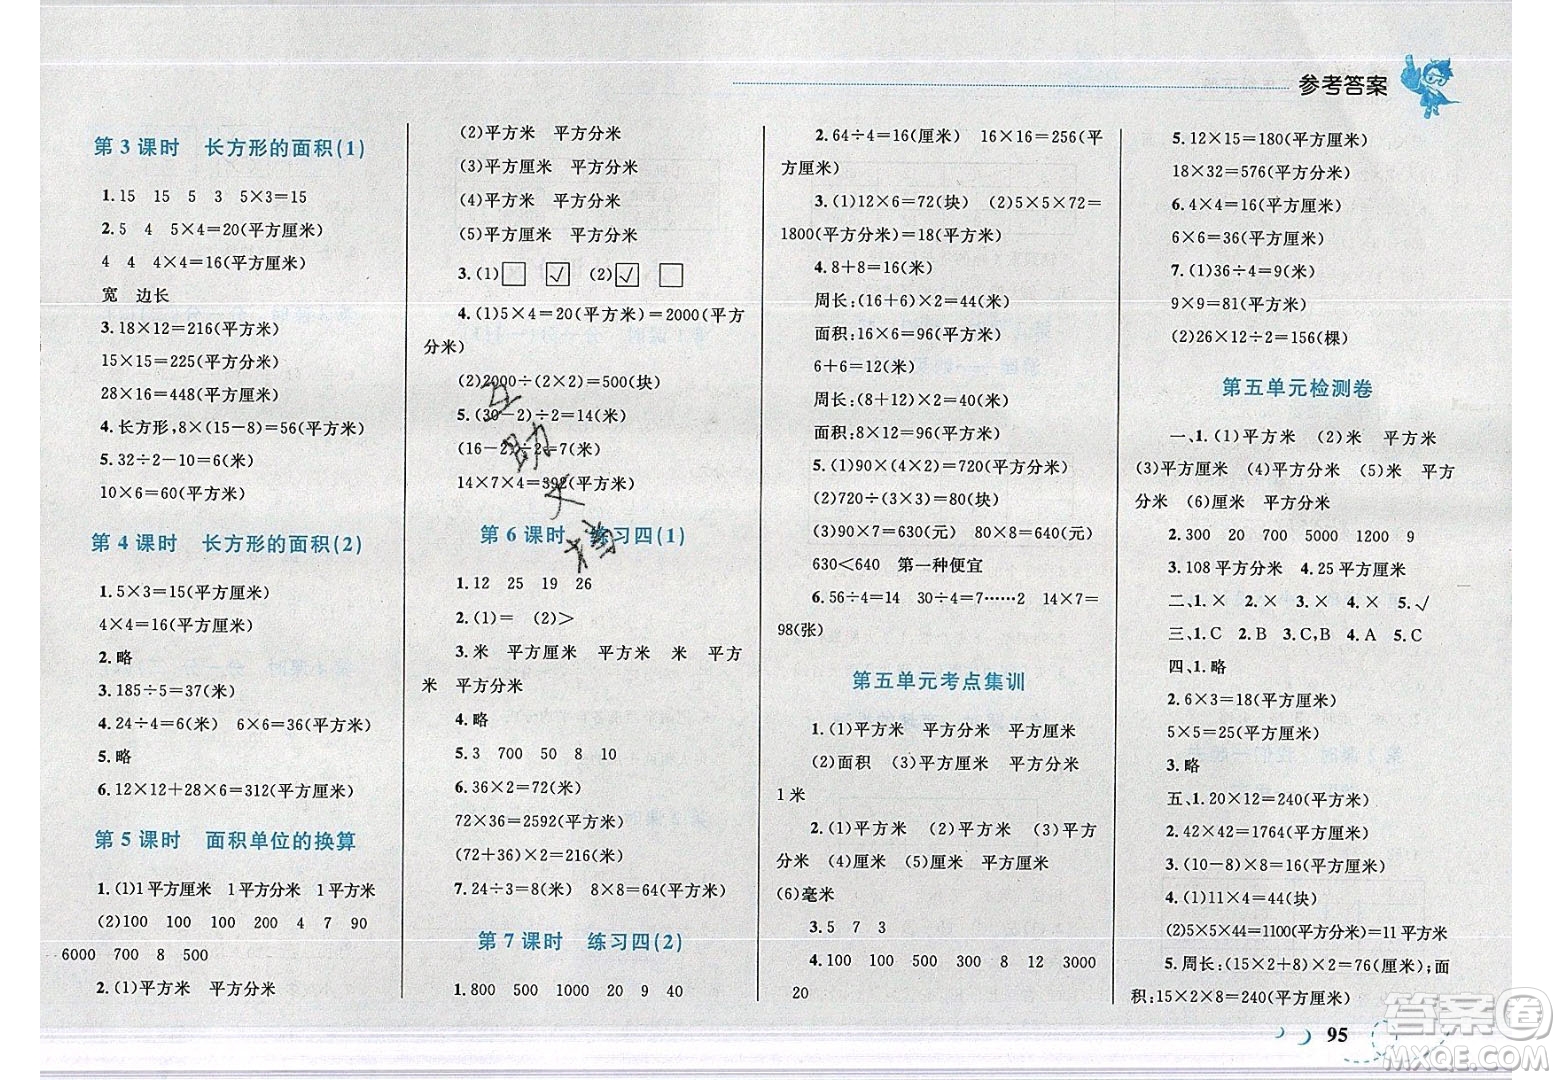 参考答案
第3课时 长方形的面积(1)
1.15 15 5 3 5×3=15
2.5 4 5×4=20(平方厘米)
4 4 4×4=16(平方厘米)
宽 边长
3.18×12=216(平方米)
15×15=225(平方分米)
28×16=448(平方厘米)
4.长方形,8×(15-8)=56(平方米)
5.32÷2-10=6(厘米)
10×6=60(平方厘米)
第4课时 长方形的面积(2)
1.5×3=15(平方厘米)
4×4=16(平方厘米)
2.略
3.185÷5=37(米)
4.24÷4=6(米) 6×6=36(平方米)
5.略
6.12×12+28×6=312(平方厘米)
第5课时 面积单位的换算
1.(1)1平方厘米 1平方分米 1平方米
(2)100 100 100 200 4 7 90
6000 700 8 500
2.(1)平方米 平方分米
(2)平方米 平方分米
(3)平方厘米 平方分米
(4)平方米 平方分米
(5)平方厘米 平方分米
3.(1)□ ☑ (2)☑ □
4.(1)5×4=20(平方米)=2000(平方
分米)
(2)2000÷(2×2)=500(块)
5.(30-2)÷2=14(米)
(16-2)÷2=7(米)
14×7×4=392(平方米)
第6课时 练习四(1)
1.12 25 19 26
2.(1)= (2)>
3.米 平方厘米 平方米 米 平方
米 平方分米
4.略
5.3 700 50 8 10
6.36×2=72(米)
72×36=2592(平方米)
(72+36)×2=216(米)
7.24÷3=8(米) 8×8=64(平方米)
第7课时 练习四(2)
1.800 500 1000 20 9 40
2.64÷4=16(厘米) 16×16=256(平
方厘米)
3.(1)12×6=72(块) (2)5×5×72=
1800(平方分米)=18(平方米)
4.8+8=16(米)
周长:(16+6)×2=44(米)
面积:16×6=96(平方米)
6+6=12(米)
周长:(8+12)×2=40(米)
面积:8×12=96(平方米)
5.(1)90×(4×2)=720(平方分米)
(2)720÷(3×3)=80(块)
(3)90×7=630(元) 80×8=640(元)
630<640 第一种便宜
6.56÷4=14 30÷4=7……2 14×7=
98(张)
第五单元考点集训
1.(1)平方米 平方分米 平方厘米
(2)面积 (3)平方厘米 平方分米
1米
2.(1)平方米 (2)平方米 (3)平方
分米 (4)厘米 (5)厘米 平方厘米
(6)毫米
3.5 7 3
4.100 100 500 300 8 12 3000
20
5.12×15=180(平方米)
18×32=576(平方分米)
6.4×4=16(平方厘米)
6×6=36(平方厘米)
7.(1)36÷4=9(米)
9×9=81(平方米)
(2)26×12÷2=156(棵)
第五单元检测卷
一、1.(1)平方米 (2)米 平方米
(3)平方厘米 (4)平方分米 (5)米 平方
分米 (6)厘米 平方分米
2.300 20 7 5000 1200 9
3.108平方分米 4.25平方厘米
二、1.× 2.× 3.× 4.× 5.√
三、1.C 2.B 3.C,B 4.A 5.C
四、1.略
2.6×3=18(平方厘米)
5×5=25(平方厘米)
3.略
五、1.20×12=240(平方米)
2.42×42=1764(平方厘米)
3.(10-8)×8=16(平方厘米)
4.(1)11×4=44(块)
(2)5×5×44=1100(平方分米)=11平方米
5.周长:(15×2+8)×2=76(厘米);面
积:15×2×8=240(平方厘米)
95
答案圈
MXQE.COM